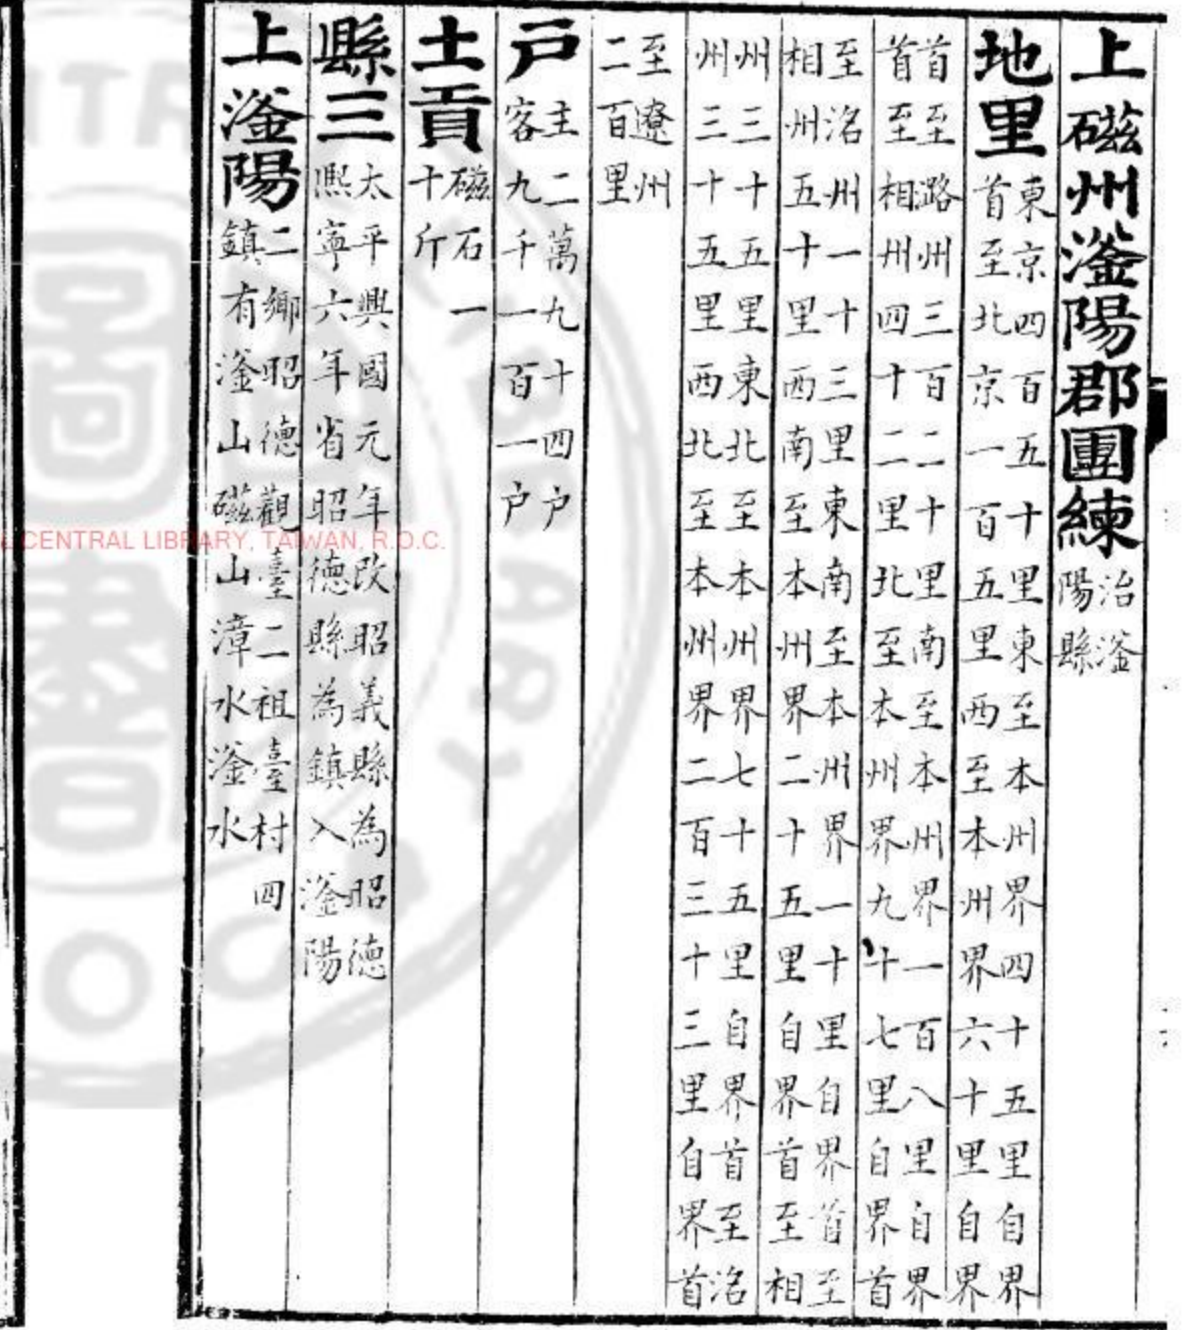 上磁州滏陽郡團練治滏
陽縣
地里東京四百五十里東至本州界四十五里自界
首至北京一百五里西至本州界六十里自界
首至潞州三百二十里南至本州界一百八里自界
首至相州四十二里北至本州界九十七里自界首
至洺州一十三里東南至本州界一十里自界首至
相州五十里西南至本州界二十五里自界首至相
州三十五里東北至本州界七十五里自界首至洺
州三十五里西北至本州界二百三十三里自界首
至遼州
二百里
戶主二萬九十四戶
客九千一百一戶
土貢磁石一
十斤
縣三太平興國元年改昭義縣為昭德
熙寧六年省昭德縣為鎮入滏陽
上滏陽二鄉昭德觀臺二祖臺村四
鎮有滏山磁山漳水滏水
CENTRAL LIBRARY, TAIWAN, R.O.C.